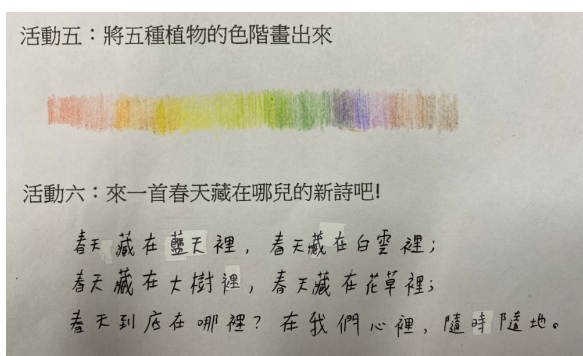 活動五：將五種植物的色階畫出來
活動六：來一首春天藏在哪兒的新詩吧!
春天藏在藍天裡，春天藏在白雲裡；
春天藏在大樹裡，春天藏在花草裡；
春天到底在哪裡？在我們心裡，隨時隨地。